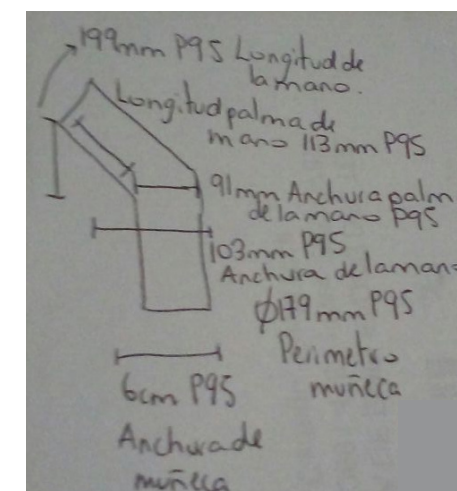 199mm P95 Longitud de
la mano.
Longitud palma de
mano 113mm P95
91mm Anchura palm
de la mano P95
103mm P95
Anchura de la man
Ø179mm P95
Perimetro
muñeca
6cm P95
Anchura de
muñeca